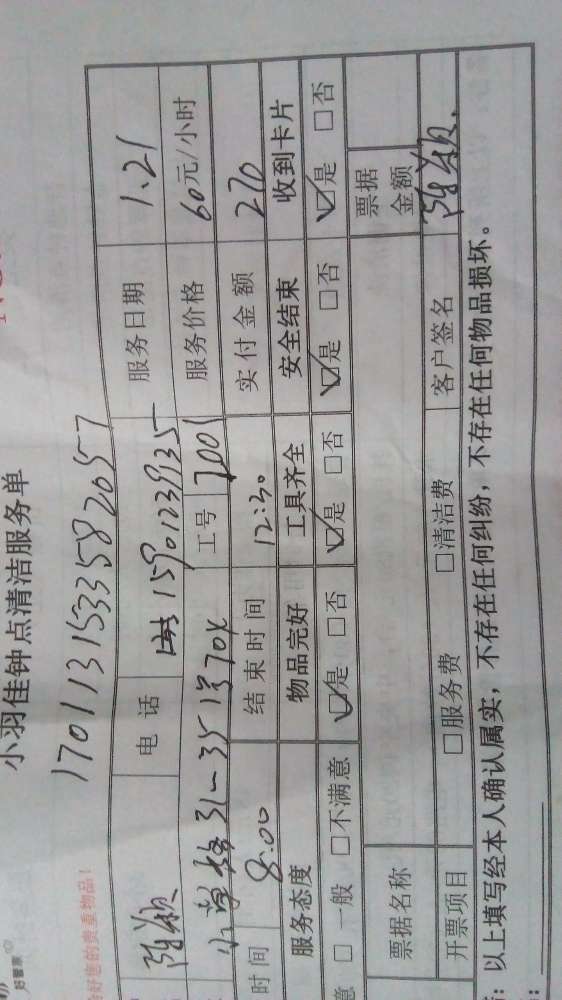 小羽佳钟点清洁服务单
好管家
1701131533582057
的贵重物品!
陈颖 电话 15901239135 服务日期 1.21
31-35号 工号 7001 服务价格 60元/小时
时间 8:00 结束时间 12:30 实付金额 270
服务态度 物品完好 工具齐全 安全结束 收到卡片
意 □一般 □不满意 ☑是 □否 ☑是 □否 ☑是 □否 ☑是 □否
票据名称 票据金额
开票项目 □服务费 □清洁费 客户签名 陈颖
:以上填写经本人确认属实,不存在任何纠纷,不存在任何物品损坏。